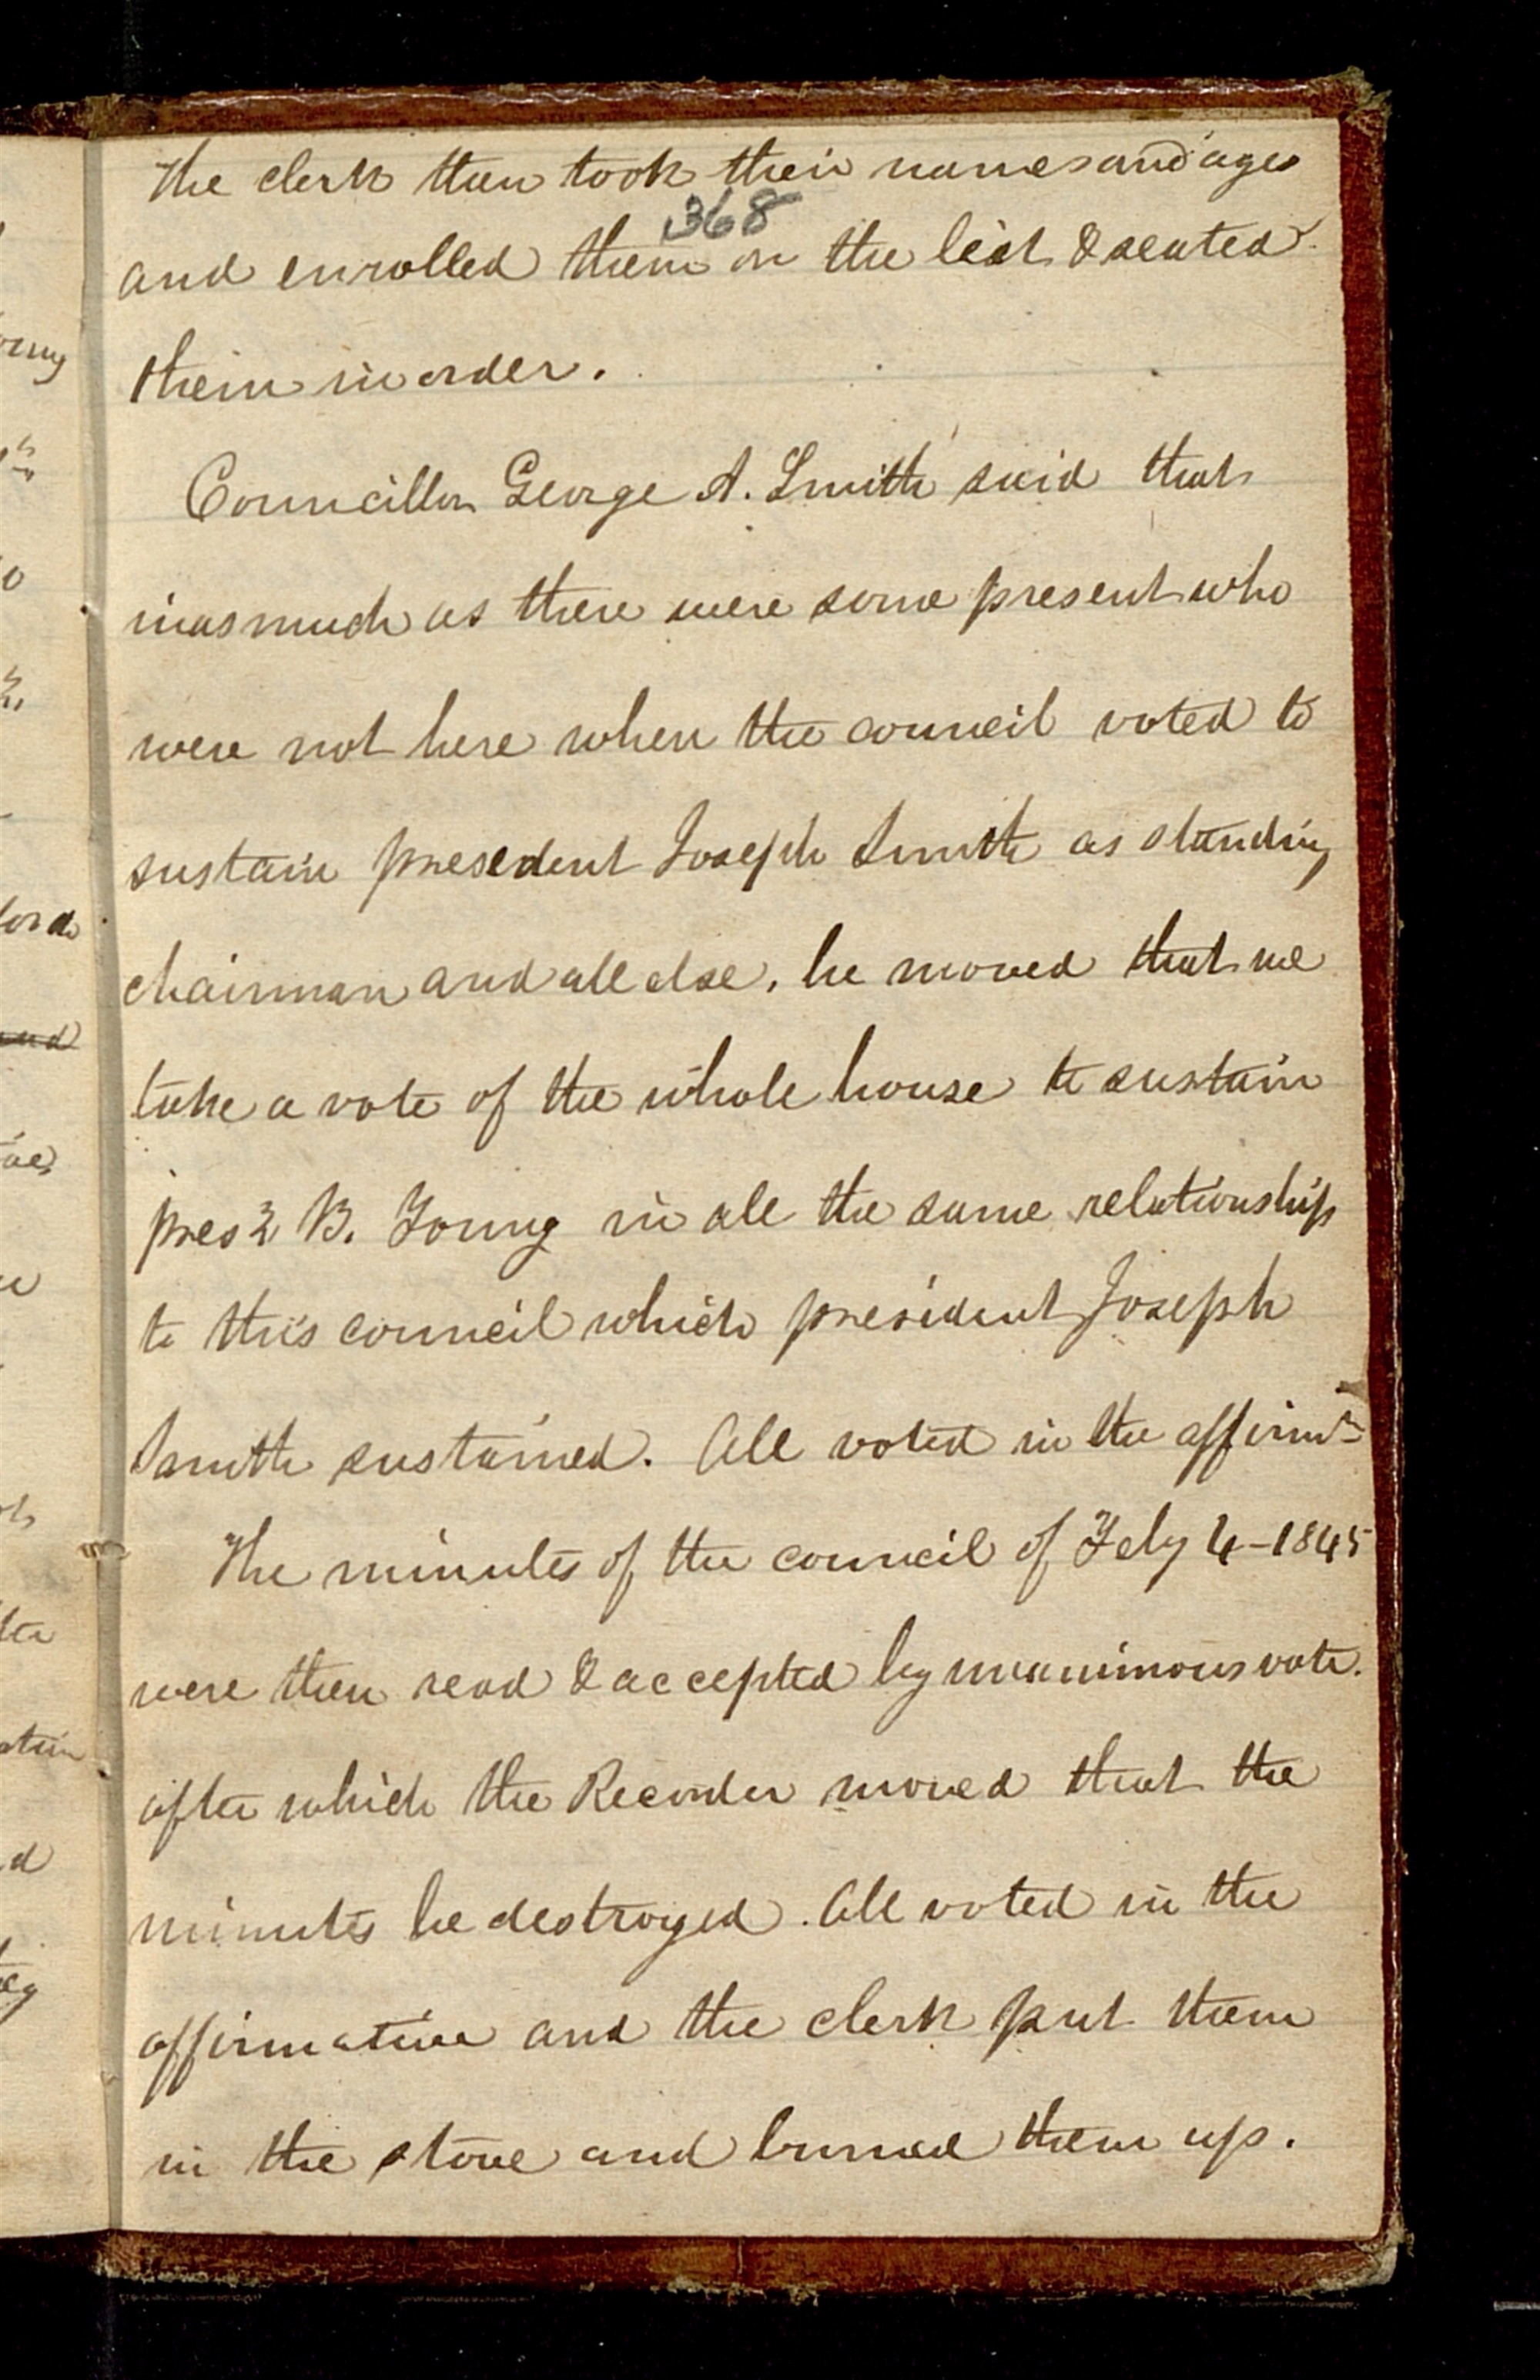 The clerk then took their names and ages
368
and enrolled them on the list & seated
them in order.
Councillor George A. Smith said that
inasmuch as there were some present who
were not here when the council voted to
sustain president Joseph Smith as standing
chairman and all else, he moved that we
take a vote of the whole house to sustain
prest B. Young in all the same relationship
to this council which president Joseph
Smith sustained. All voted in the affirmve
The minutes of the council of Feby 4-1845
were then read & accepted by unanimous vote.
after which the Recorder moved that the
minutes be destroyed. All voted in the
affirmative and the clerk put them
in the stove and burned them up.